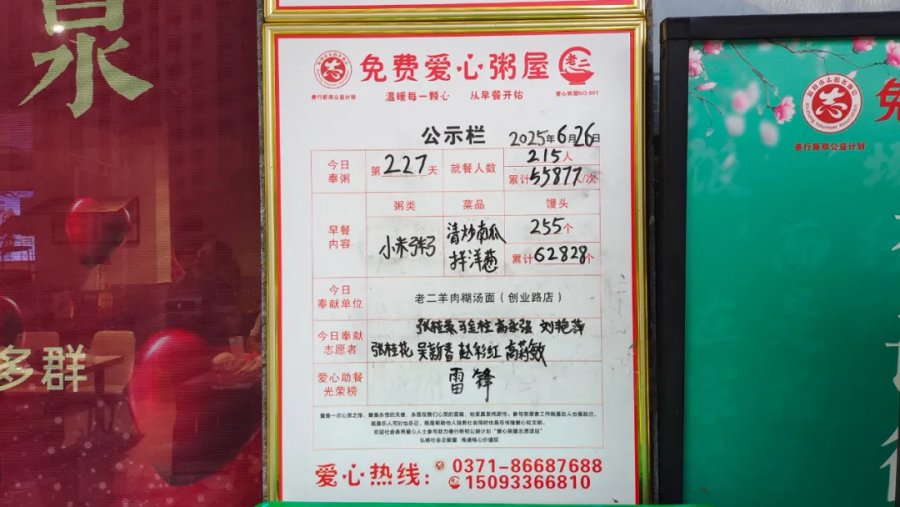 泉
多群
免费爱心粥屋
老二
善行新郑公益计划
温暖每一颗心 从早餐开始
爱心粥屋NO:001
公示栏 2025年6月26日
今日奉粥 第227天 就餐人数 215人
累计55877人/次
早餐内容 粥类 菜品 馒头
小米粥 清炒南瓜 拌洋葱 255个
累计62828个
今日奉献单位 老二羊肉糊汤面（创业路店）
今日奉献志愿者 高永强 刘艳萍
张桂花 吴新香 赵彩红
爱心助餐光荣榜 雷锋
弘扬社会正能量 传递核心价值观
爱心热线：
0371-86687688
15093366810
善行新郑公益计划
免